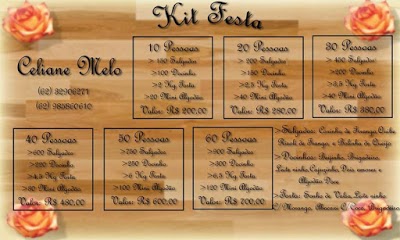 Kit Festa
Celiane Melo
(62) 32906271
(62) 985560610
10 Pessoas
> 150 Salgados
> 100 Docinho
>2 Kg Torta
>20 Mini Algodão
Valor: R$ 200,00
20 Pessoas
> 250 Salgados
> 100 Docinho
>2,5 Kg Torta
>40 Mini Algodão
Valor: R$ 280,00
30 Pessoas
> 400 Salgados
>200 Docinho
> 3 Kg Torta
>40 Mini Algodão
Valor: R$ 380,00
40 Pessoas
>600 Salgados
>250 Docinho
>4,5 Kg Torta
>80 Mini Algodão
Valor: R$ 480,00
50 Pessoas
>750 Salgados
>250 Docinho
>6 Kg Torta
>40 Mini Algodão
Valor: R$ 600,00
60 Pessoas
>900 Salgados
> 300 Docinho
>6,5 Kg Torta
>40 Mini Algodão
Valor: R$ 700,00
>Salgados: Coxinha de Frango, Quibe
Risole de Frango, e Bolinha de Queijo
>Docinhos: Beijinho, Brigadeiro
Leite ninho, Cajuzinho, Dois amores e
Algodão Doce
>Torta: Sonho de Valsa, Leite ninho
C/ Morango, Abacaxi C/ Coco, Brigadeiro